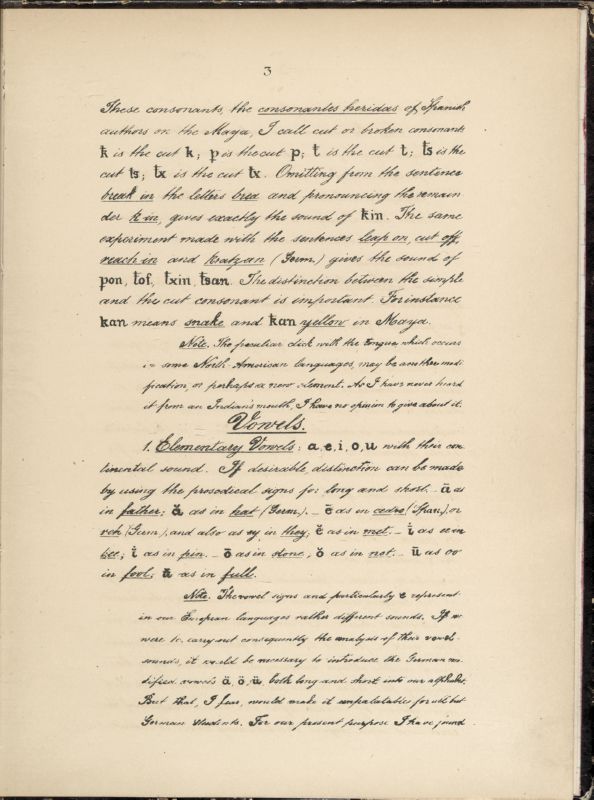 3
These consonants, the consonantes heridas of Spanish
authors on the Maya, I call cut or broken consonants
ꝁ is the cut k; p̵ is the cut p; ŧ is the cut t; ŧs is the
cut ts; ŧx is the cut tx. Omitting from the sentence
break in the letters brea and pronouncing the remain
der k in, gives exactly the sound of ꝁin. The same
experiment made with the sentences leap on, cut off,
reach in and (Germ.) gives the sound of
p̵on, ŧof, ŧxin, ŧsan. The distinction between the simple
and the cut consonant is important. For instance
kan means snake and ꝁan yellow in Maya.
Note. The peculiar click with the tongue, which occurs
in some North-American languages, may be another modi
fication, or perhaps a new element. As I have never heard
it from an Indian's mouth, I have no opinion to give about it.
Vowels.
1. Elementary Vowels: a, e, i, o, u with their con
tinental sound. If desirable, distinction can be made
by using the prosodical signs for long and short. – ā as
in father; ă as in hat (Germ.). – ē as in cedro (Span.), or
reh (Germ.), and also as ey in they; ĕ as in met. – ī as ee in
bee; ĭ as in pin. – ō as in stone, ŏ as in not. – ū as oo
in fool; ŭ as in full.
Note. The vowel signs and particularly e represent
in our European languages rather different sounds. If we
were to carry out consequently the analysis of their vowel-
sounds, it would be necessary to introduce the German mo
dified vowels ä, ö, ü, both long and short into our alphabet.
But that, I fear, would make it unpalatable for all but
German students. For our present purpose I have found